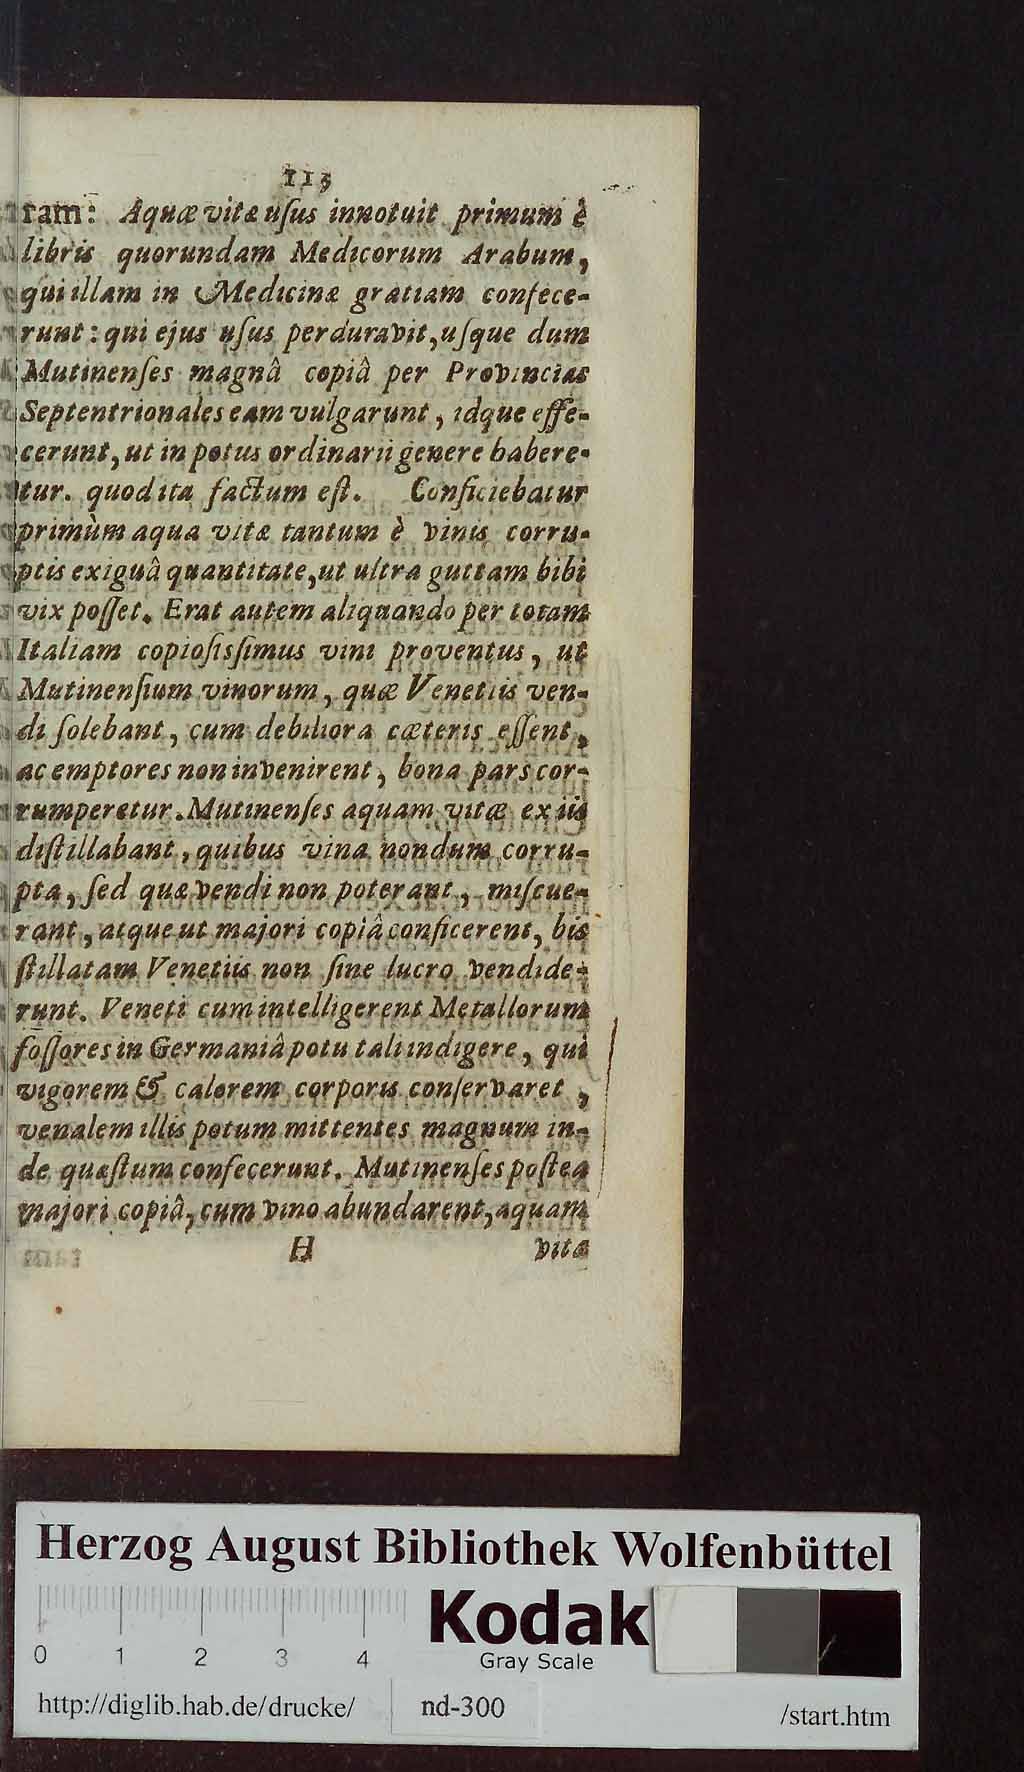 113
ram: Aquæ vitæ uſus innotuit primum è
libris quorundam Medicorum Arabum,
qui illam in Medicinæ gratiam confece-
runt: qui ejus uſus perduravit, uſque dum
Mutinenſes magnâ copiâ per Provincias
Septentrionales eam vulgarunt, idque effe-
cerunt, ut in potus ordinarii genere habere-
tur. quod ita factum eſt. Conficiebatur
primùm aqua vitæ tantum è vinis corru-
ptis exiguâ quantitate, ut ultra guttam bibi
vix poſſet. Erat autem aliquando per totam
Italiam copioſisſimus vini proventus, ut
Mutinenſium vinorum, quæ Venetiis ven-
di ſolebant, cum debiliora cæteris eſſent,
ac emptores non invenirent, bona pars cor-
rumperetur. Mutinenſes aquam vitæ ex iis
diſtillabant, quibus vina nondum corru-
pta, ſed quæ vendi non poterant, miſcue-
rant, atque ut majori copiâ conficerent, bis
ſtillatam Venetiis non ſine lucro vendide-
runt. Veneti cum intelligerent Metallorum
foſſores in Germaniâ potu tali indigere, qui
vigorem & calorem corporis conſervaret,
venalem illis potum mittentes magnum in-
de quæſtum confecerunt. Mutinenſes poſtea
majori copiâ, cum vino abundarent, aquam
H vitæ
Herzog August Bibliothek Wolfenbüttel
Kodak
Gray Scale
0 1 2 3 4
http://diglib.hab.de/drucke/ nd-300 /start.htm